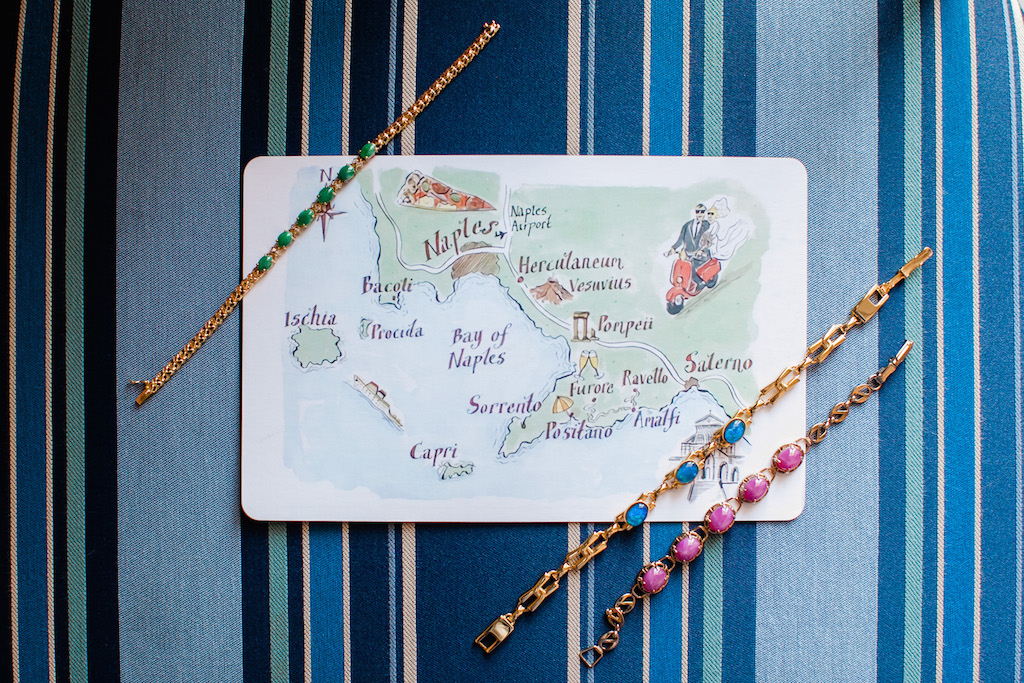 N
Naples
Airport
Naples
Herculaneum
Vesuvius
Bacoli
Ischia
Procida
Bay of
Naples
Pompeii
Salerno
Furore
Ravello
Sorrento
Positano
Amalfi
Capri